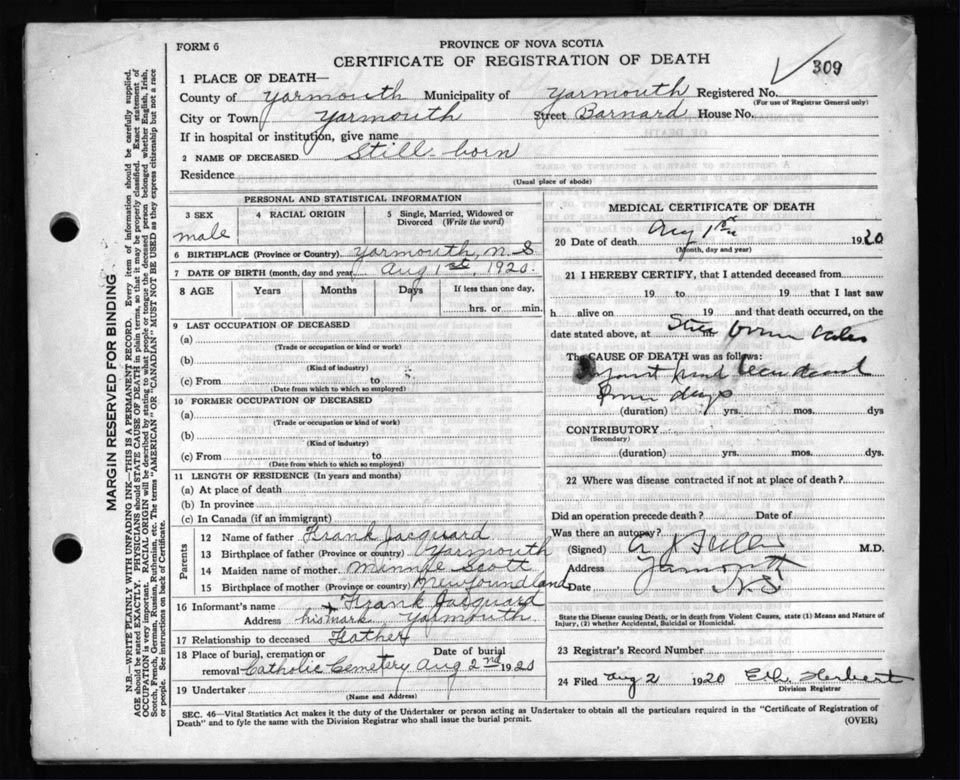 FORM 6
PROVINCE OF NOVA SCOTIA
CERTIFICATE OF REGISTRATION OF DEATH
309
1 PLACE OF DEATH—
County of Yarmouth Municipality of Yarmouth Registered No.
(For use of Registrar General only)
City or Town Yarmouth Street Barnard House No.
If in hospital or institution, give name
2 NAME OF DECEASED Still-born
Residence
(Usual place of abode)
PERSONAL AND STATISTICAL INFORMATION
3 SEX 4 RACIAL ORIGIN 5 Single, Married, Widowed or Divorced (Write the word)
male
6 BIRTHPLACE (Province or Country) Yarmouth, N.S
7 DATE OF BIRTH (month, day and year) Aug 1st, 1920.
8 AGE Years Months Days If less than one day,
hrs. or min.
9 LAST OCCUPATION OF DECEASED
(a)
(Trade or occupation or kind or work)
(b)
(Kind of industry)
(c) From to
(Date from which to which so employed)
10 FORMER OCCUPATION OF DECEASED
(a)
(Trade or occupation or kind of work)
(b)
(Kind of industry)
(c) From to
(Date from which to which so employed)
11 LENGTH OF RESIDENCE (In years and months)
(a) At place of death
(b) In province
(c) In Canada (if an immigrant)
Parents
12 Name of father Frank Jacquard
13 Birthplace of father (Province or country) Yarmouth
14 Maiden name of mother Minnie Scott
15 Birthplace of mother (Province or country) Newfoundland
16 Informant's name Frank Jacquard
Address his mark Yarmouth
17 Relationship to deceased Father
18 Place of burial, cremation or removal Catholic Cemetery Date of burial Aug 2nd 1920
19 Undertaker
(Name and Address)
MEDICAL CERTIFICATE OF DEATH
20 Date of death Aug 1st 1920
(Month, day and year)
21 I HEREBY CERTIFY, that I attended deceased from
19 to 19 that I last saw
h alive on 19 and that death occurred, on the
date stated above, at Still born
The CAUSE OF DEATH was as follows:
days
(duration) yrs. mos. dys
CONTRIBUTORY
(Secondary)
(duration) yrs. mos. dys
22 Where was disease contracted if not at place of death?
Did an operation precede death? Date of
Was there an autopsy?
(Signed) M.D.
Address Yarmouth
Date N.S
State the Disease causing Death, or in death from Violent Causes, state (1) Means and Nature of
Injury, (2) whether Accidental, Suicidal or Homicidal.
23 Registrar's Record Number
24 Filed Aug 2 1920 Herbert
Division Registrar
SEC. 46—Vital Statistics Act makes it the duty of the Undertaker or person acting as Undertaker to obtain all the particulars required in the "Certificate of Registration of
Death" and to fyle the same with the Division Registrar who shall issue the burial permit.
(OVER)
MARGIN RESERVED FOR BINDING
N.B.—WRITE PLAINLY WITH UNFADING INK—THIS IS A PERMANENT RECORD. Every item of information should be carefully supplied.
AGE should be stated EXACTLY. PHYSICIANS should STATE CAUSE OF DEATH in plain terms, so that it may be properly classified. Exact statement of
OCCUPATION is very important. RACIAL ORIGIN will be described by stating to what people or tongue the deceased person belonged whether English, Irish,
Scotch, French, German, Russian, Ruthenian, etc. The terms "AMERICAN" OR "CANADIAN" MUST NOT BE USED as they express citizenship but not a race
or people. See instructions on back of Certificate.